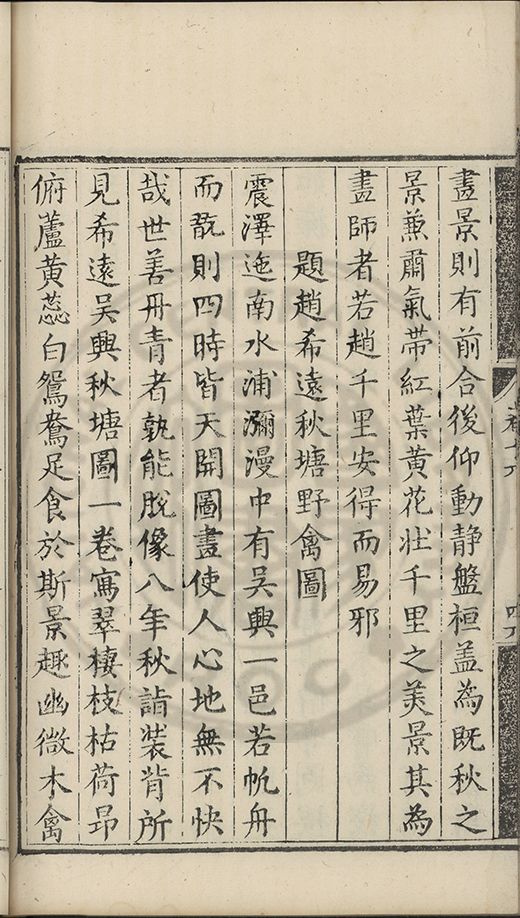 畫景則有前合後仰動静盤桓盖為既秋之
景蕭肅氣帶紅葉黄花壯千里之美景其為
畫師者若趙千里安得而易邪
題趙希遠秋塘野禽圖
震澤迤南水浦瀰漫中有吴興一邑若帆舟
而翫則四時皆天開圖畫使人心地無不快
哉世善丹青者孰能脱像八年秋詣装背所
見希遠吴興秋塘圖一卷寫翠棲枝枯荷昻
俯蘆黄蕊白鴛鴦足食於斯景趣幽微木禽